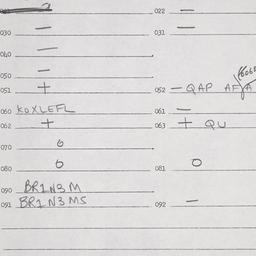 022 —
030 — 031 —
040 —
050 —
051 + 052 — QAP
060 KOXLEFL 061 —
062 + 063 + QU
070 0
080 0 081 0
090 BR1N3M
091 BR1N3MS 092 —